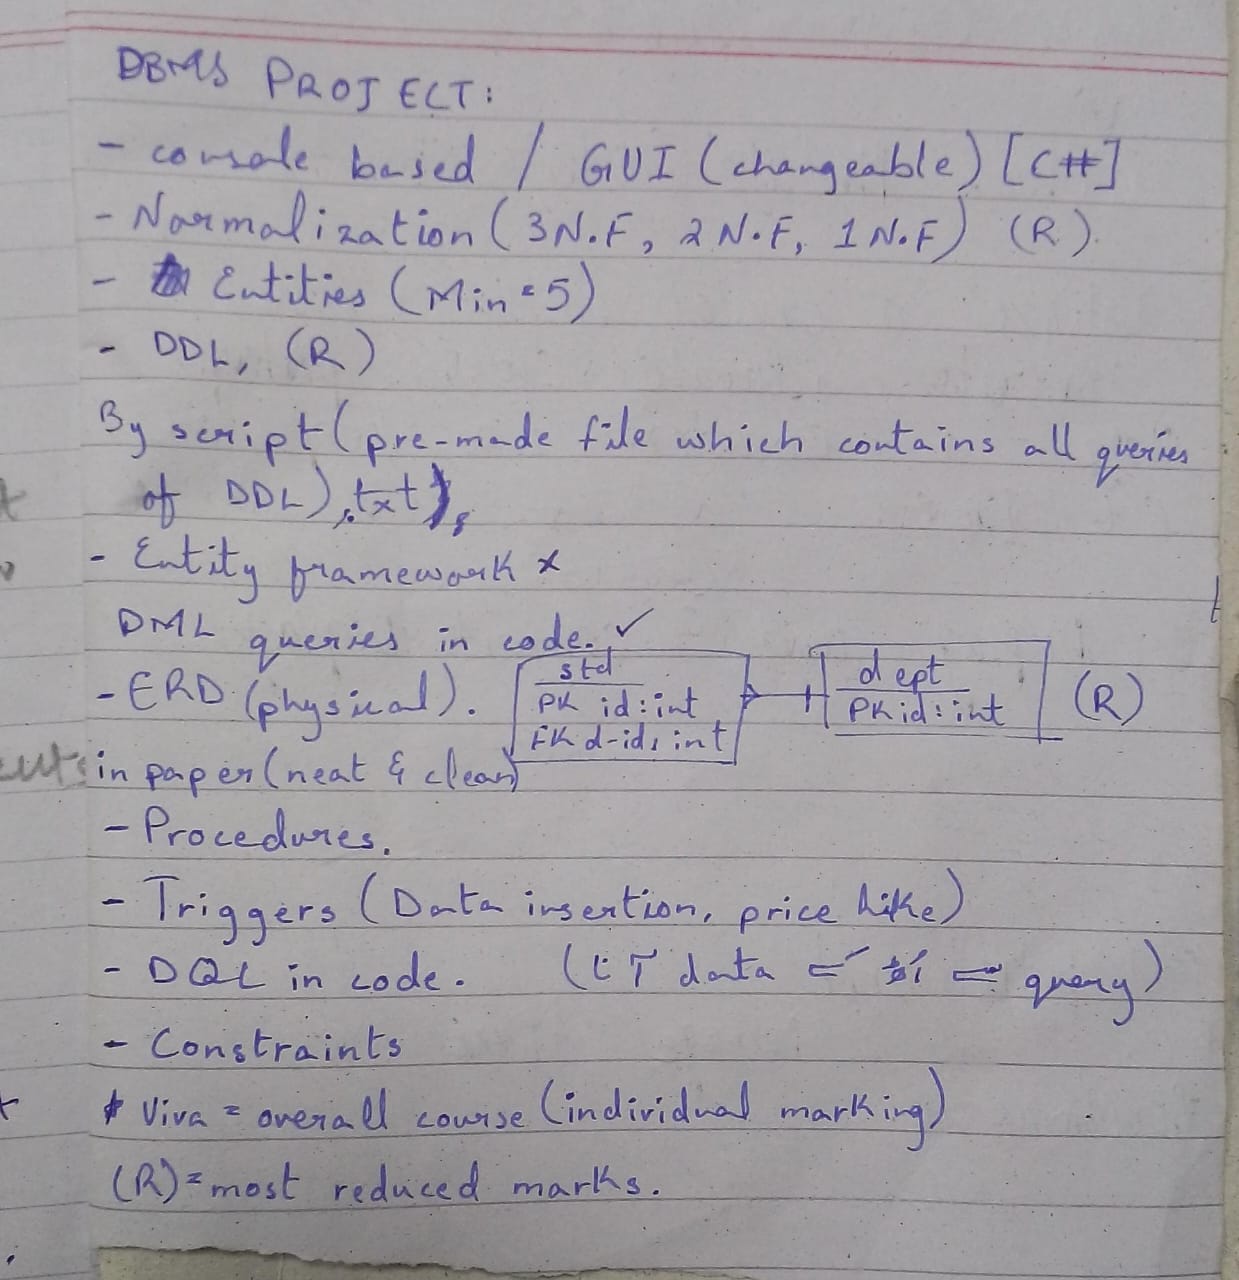 DBMS PROJECT:
- console based / GUI (changeable) [C#]
- Normalization (3N.F, 2N.F, 1N.F) (R).
- Entities (Min = 5)
- DDL, (R)
By script (pre-made file which contains all queries
of DDL) .txt),
- Entity framework x
DML queries in code. ✓
- ERD (physical).
std
PK id: int
FK d-id: int
dept
PK id: int
(R)
in paper (neat & clean)
- Procedures.
- Triggers (Data insertion, price hike)
- DQL in code. ( data query)
- Constraints
* Viva = overall course (individual marking)
(R) = most reduced marks.